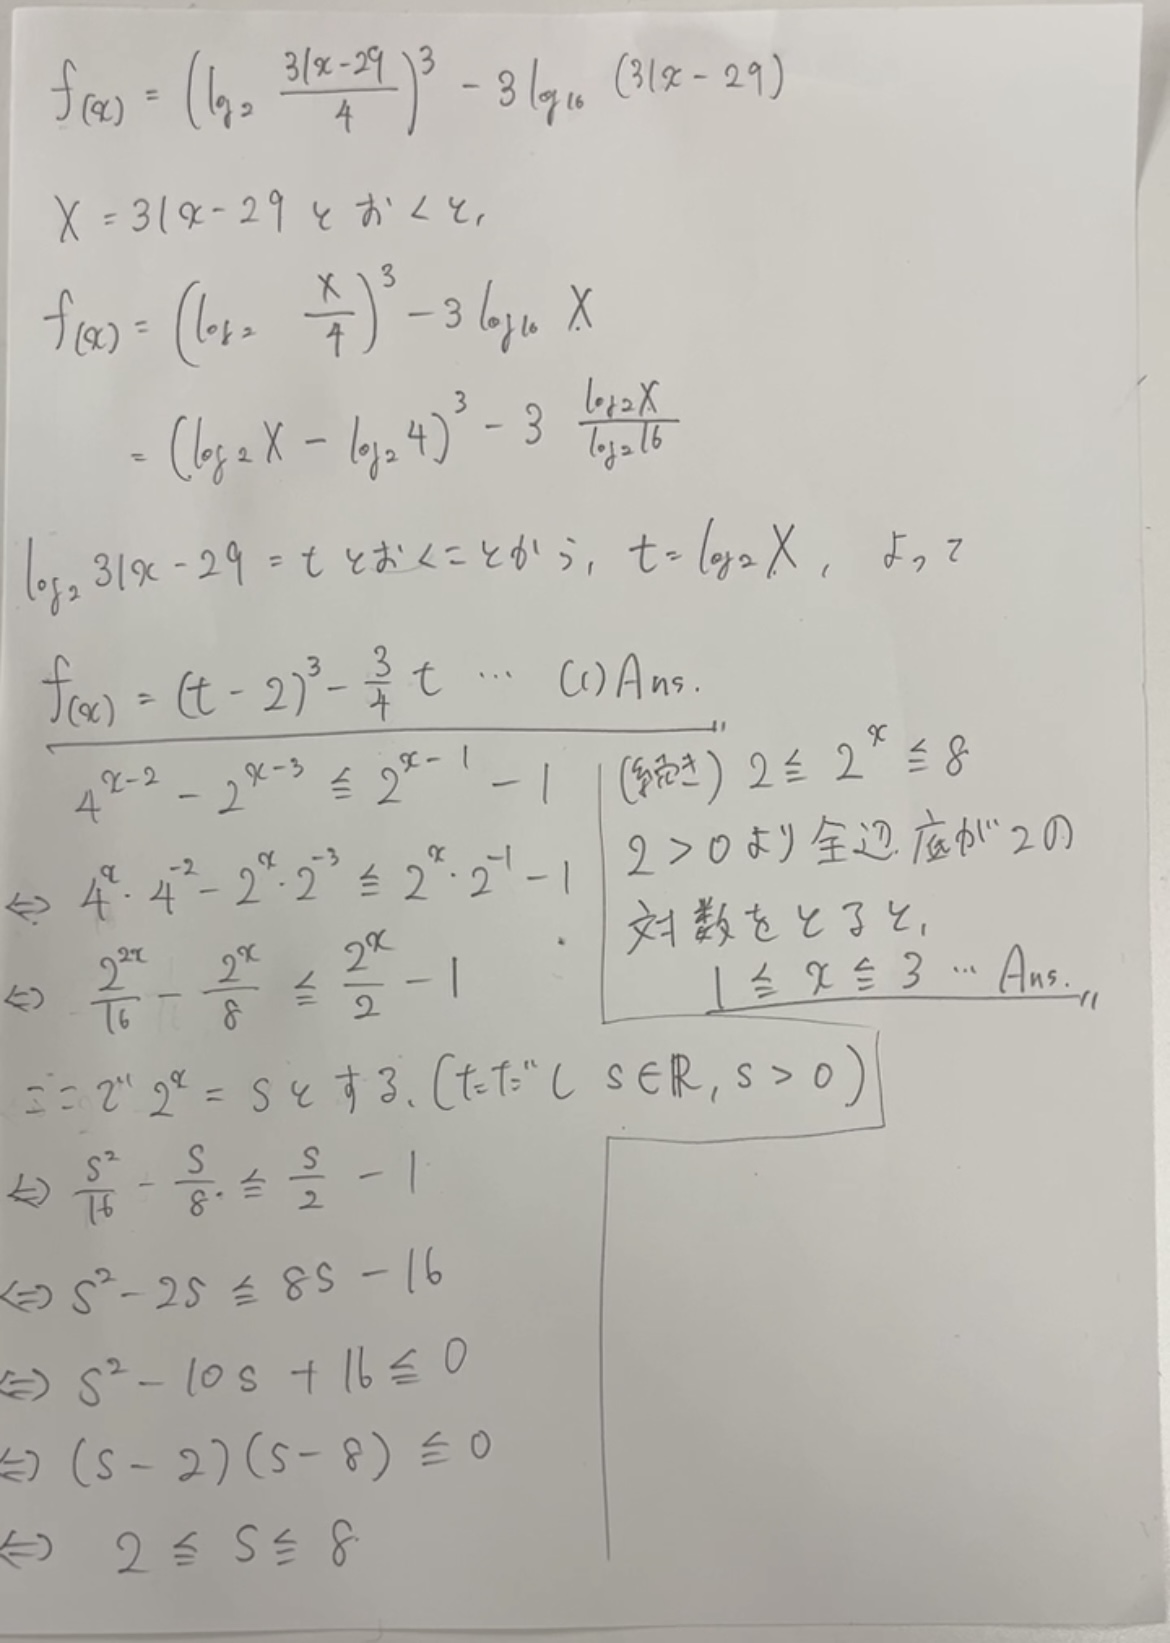 f(x) = (log₂ (31x-29)/4)³ - 3log₁₆ (31x-29)
X = 31x-29 とおくと,
f(x) = (log₂ X/4)³ - 3log₁₆ X
= (log₂X - log₂4)³ - 3 log₂X/log₂16
log₂ 31x-29 = t とおくことから, t = log₂X, よって
f(x) = (t-2)³ - 3/4 t … (1) Ans. 〃
4^(x-2) - 2^(x-3) ≦ 2^(x-1) - 1
⇔ 4^x・4^(-2) - 2^x・2^(-3) ≦ 2^x・2^(-1) - 1
⇔ 2^(2x)/16 - 2^x/8 ≦ 2^x/2 - 1
ここで 2^x = s とする. (ただし s∈ℝ, s > 0)
⇔ s²/16 - s/8 ≦ s/2 - 1
⇔ s² - 2s ≦ 8s - 16
⇔ s² - 10s + 16 ≦ 0
⇔ (s-2)(s-8) ≦ 0
⇔ 2 ≦ s ≦ 8
(続き) 2 ≦ 2^x ≦ 8
2>0より 全辺底が2の
対数をとると,
1 ≦ x ≦ 3 … Ans. 〃